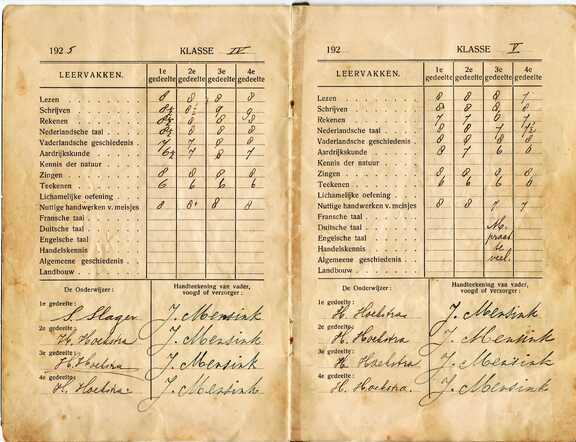 1925 KLASSE IV
LEERVAKKEN. 1e gedeelte 2e gedeelte 3e gedeelte 4e gedeelte
Lezen 8 8 8 8
Schrijven 8½ 8½ 9 8
Rekenen 8½ 8 8 9
Nederlandsche taal 8½ 8 8 8
Vaderlandsche geschiedenis 7 7 8 8
Aardrijkskunde 6½ 7 8 7
Kennis der natuur
Zingen 8 8 8 8
Teekenen 6 6 6 6
Lichamelijke oefening
Nuttige handwerken v. meisjes 8 8+ 8 8
Fransche taal
Duitsche taal
Engelsche taal
Handelskennis
Algemeene geschiedenis
Landbouw
De Onderwijzer: Handteekening van vader, voogd of verzorger:
1e gedeelte: S. Slager J. Mensink
2e gedeelte: H. Hoekstra J. Mensink
3e gedeelte: H. Hoekstra J. Mensink
4e gedeelte: H. Hoekstra. J. Mensink
192 KLASSE V
LEERVAKKEN. 1e gedeelte 2e gedeelte 3e gedeelte 4e gedeelte
Lezen 8 8 8 7
Schrijven 8 8 8 8
Rekenen 7 7 6 7
Nederlandsche taal 8 8 7 7½
Vaderlandsche geschiedenis 8 8 8 8
Aardrijkskunde 8 7 6 8
Kennis der natuur
Zingen 8 8 8 8
Teekenen 6 6 6 6
Lichamelijke oefening
Nuttige handwerken v. meisjes 8 8 7 7
Fransche taal
Duitsche taal M.
Engelsche taal praat
Handelskennis te
Algemeene geschiedenis veel.
Landbouw
De Onderwijzer: Handteekening van vader, voogd of verzorger:
1e gedeelte: H. Hoekstra J. Mensink
2e gedeelte: H. Hoekstra J. Mensink
3e gedeelte: H. Hoekstra J. Mensink
4e gedeelte: H. Hoekstra. J. Mensink